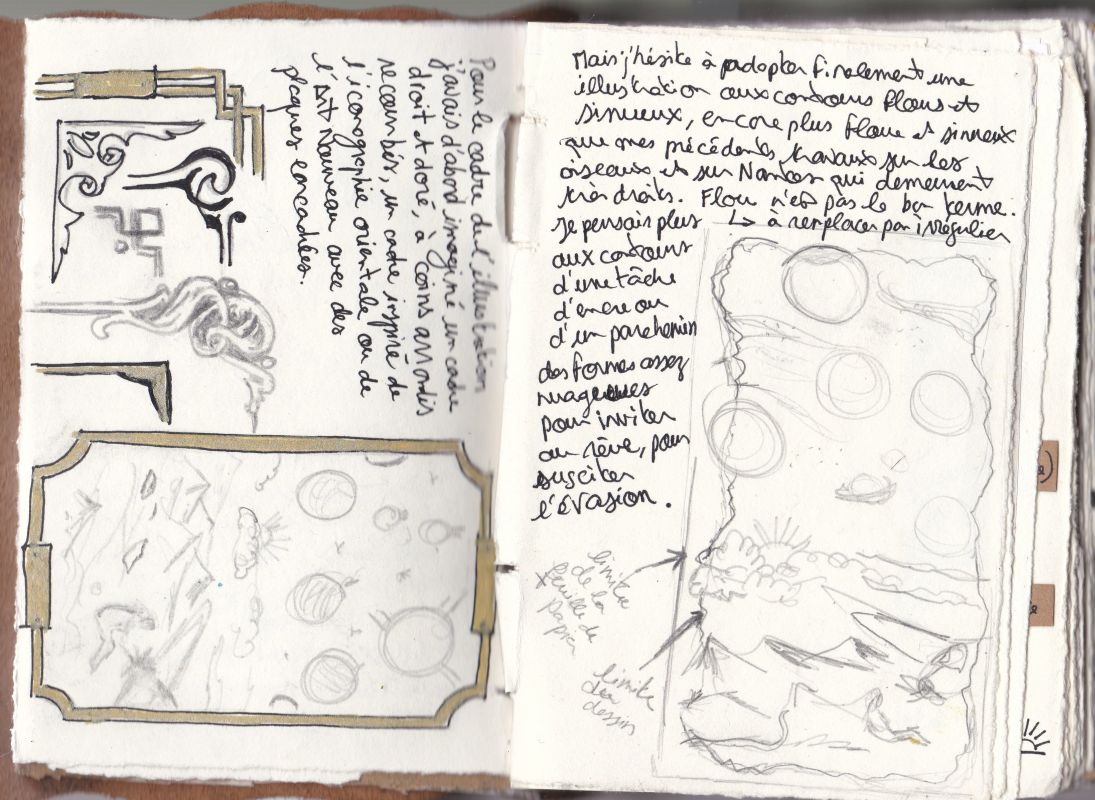 Pour le cadre de l'illustration
j'avais d'abord imaginé un cadre
droit et doré, à coins arrondis
recourbés, un cadre inspiré de
l'iconographie orientale ou de
l'Art Nouveau avec des
plaques encadrées.
Mais j'hésite à adopter finalement une
illustration aux contours flous et
sinueux, encore plus floue et sinueux
que mes précédents travaux sur les
oiseaux et sur Nantes qui demeurent
très droits. Flou n'est pas le bon terme.
↳ à remplacer par irrégulier
Je pensais plus
aux contours
d'une tâche
d'encre ou
d'un parchemin
des formes assez
nuageuses
pour inviter
au rêve, pour
susciter
l'évasion.
limite
de la
feuille de
papier
limite
du
dessin